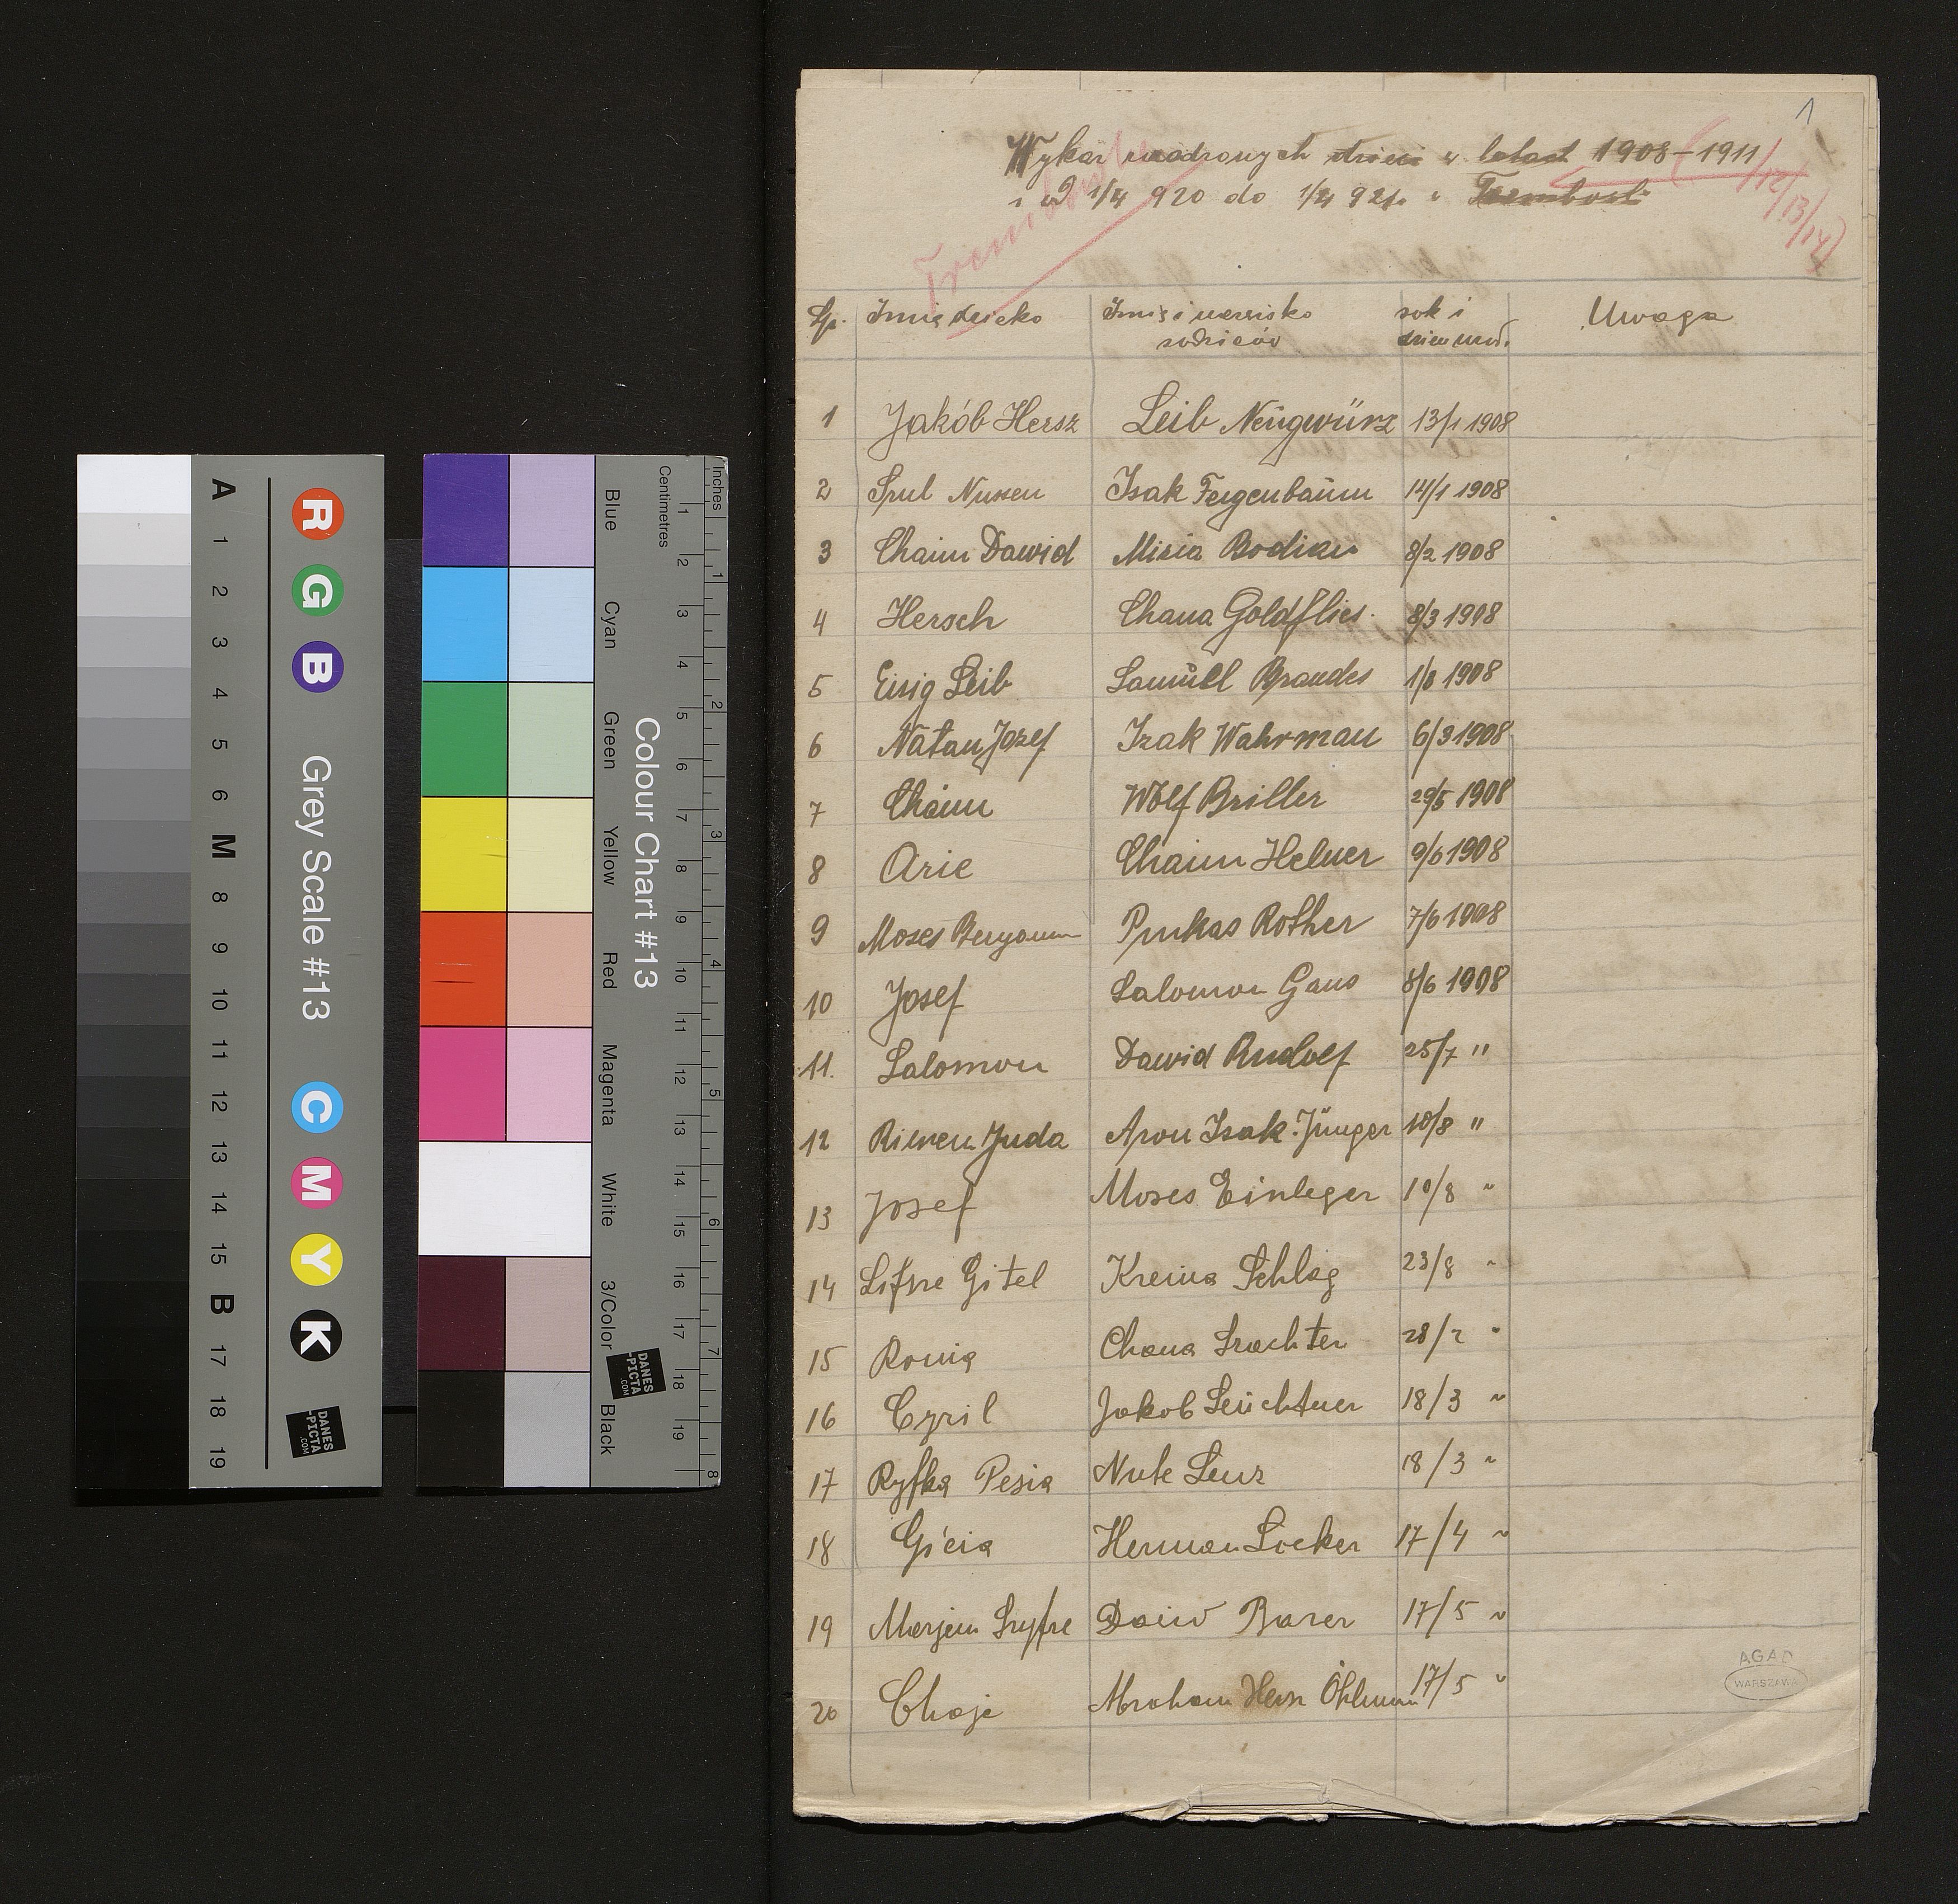 A 1 2 3 4 5 6 M 8 9 10 11 12 13 14 15 B 17 18 19
R G B Grey Scale #13 C M Y K
DANES
-PICTA
.COM
Blue Cyan Green Yellow Red Magenta White 3/Color Black
Colour Chart #13
DANES
-PICTA
.COM
Centimetres 1 2 3 4 5 6 7 8 9 10 11 12 13 14 15 16 17 18 19
Inches 1 2 3 4 5 6 7 8
1
Wykaz urodzonych dzieci w latach 1908-1911/12/13/14)
i od 1/4 920 do 1/4 921 w
Lp. Imię dziecka Imię i nazwisko rodziców rok i dzień urod. Uwaga
1 Jakób Hersz Leib Neugwürz 13/1 1908
2 Srul Nussen Isak Feigenbaum 14/1 1908
3 Chaim Dawid Misia Bodian 8/2 1908
4 Hersch Chana Goldflies 8/3 1908
5 Eisig Leib Samuel Brandes 1/8 1908
6 Natan Jozef Izak Wahrman 6/3 1908
7 Chaim Wolf Briller 29/5 1908
8 Arie Chaim Helner 9/6 1908
9 Moses Benjamin Pinkas Rother 7/6 1908
10 Josef Salomon Gans 8/6 1908
11. Salomon Dawid Rudolf 25/7 "
12 Riwen Juda Aron Isak Jünger 10/8 "
13 Josef Moses Einleger 10/8 "
14 Gitel Kreina Schlag 23/8 "
15 Ronia Chana Trachter 28/2 "
16 Cyril Jakob Leuchtner 18/3 "
17 Ryfka Pesia Nute Lenz 18/3 "
18 Gicia Herman Locker 17/4 "
19 Merjem Szyfre Dawid Barer 17/5 "
20 Chaje Abraham Hersz Öhlman 17/5 "
AGAD
WARSZAWA